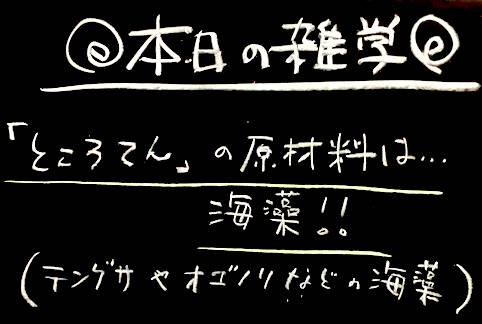 @本日の雑学@
「ところてん」の原材料は...
海藻!!
(テングサやオゴノリなどの海藻)